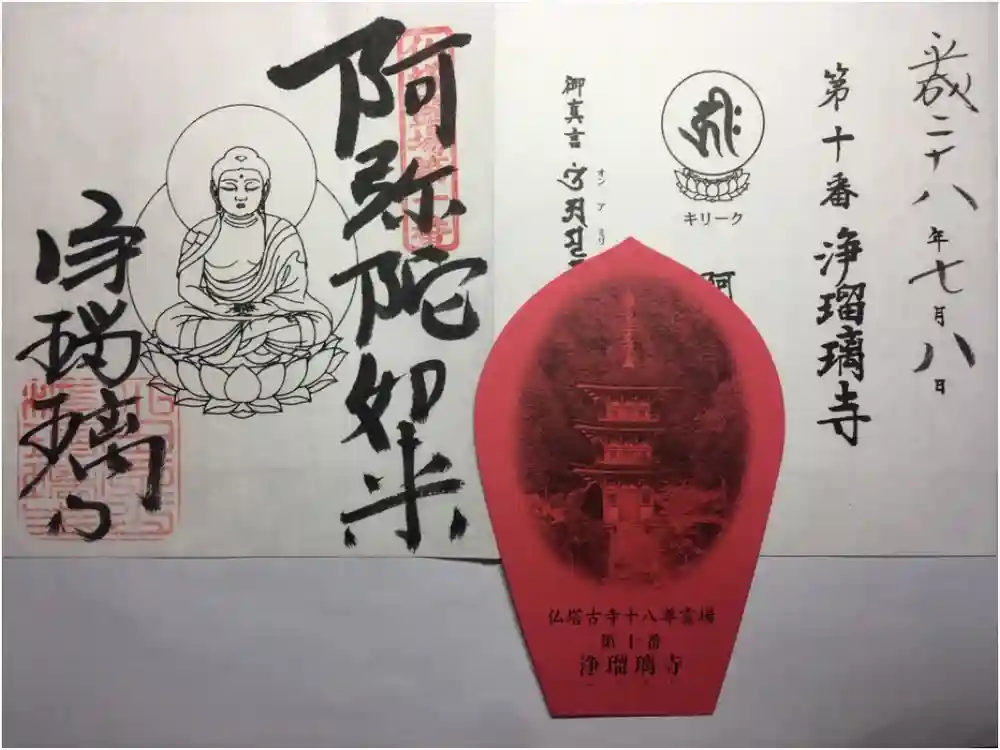 平成二十八年七月八日
第十番 浄瑠璃寺
キリーク
阿
オン ア リ
御真言
阿弥陀如来
浄瑠璃寺
仏塔古寺十八尊霊場
第十番
浄瑠璃寺